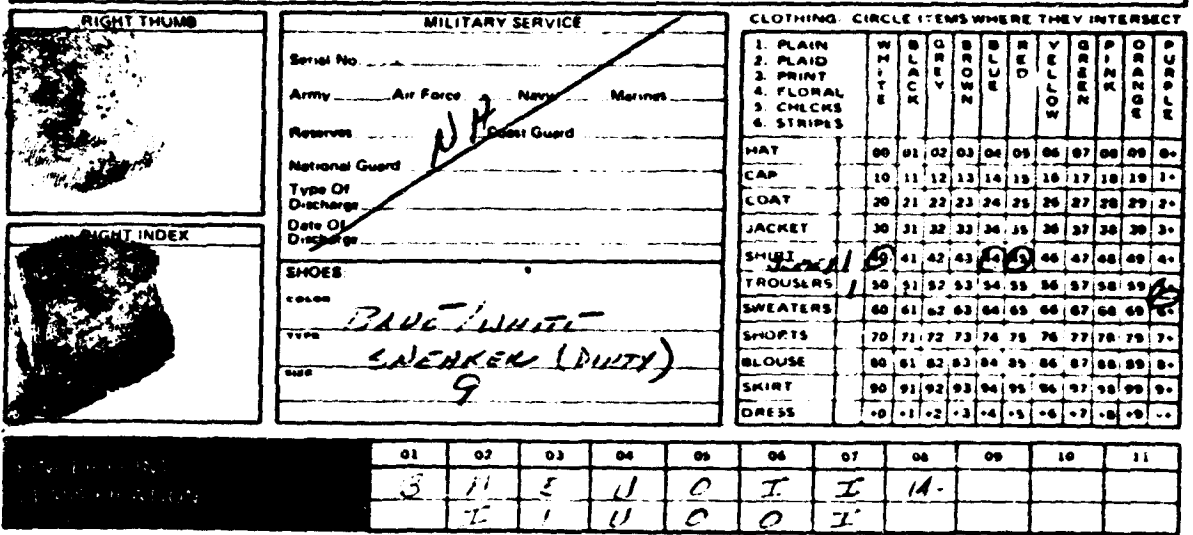 RIGHT THUMB
RIGHT INDEX
MILITARY SERVICE
Serial No.
Army Air Force Navy Marines
Reserves NA Coast Guard
National Guard
Type Of
Discharge
Date Of
Discharge
SHOES
COLOR
BLUE/WHITE
TYPE
SNEAKER (DIRTY)
SIZE
9
CLOTHING: CIRCLE ITEMS WHERE THEY INTERSECT
1. PLAIN
2. PLAID
3. PRINT
4. FLORAL
5. CHECKS
6. STRIPES
WHITE BLACK GREY BROWN BLUE RED YELLOW GREEN PINK ORANGE PURPLE
HAT 00 01 02 03 04 05 06 07 08 09 0+
CAP 10 11 12 13 14 15 16 17 18 19 1+
COAT 20 21 22 23 24 25 26 27 28 29 2+
JACKET 30 31 32 33 34 35 36 37 38 39 3+
SHIRT 1 40 41 42 43 44 45 46 47 48 49 4+
TROUSERS 1 50 51 52 53 54 55 56 57 58 59
SWEATERS 60 61 62 63 64 65 66 67 68 69 6+
SHORTS 70 71 72 73 74 75 76 77 78 79 7+
BLOUSE 80 81 82 83 84 85 86 87 88 89 8+
SKIRT 90 91 92 93 94 95 96 97 98 99 9+
DRESS +0 +1 +2 +3 +4 +5 +6 +7 +8 +9 ++
01 02 03 04 05 06 07 08 09 10 11
3 E U O I I
I 1 U O O I